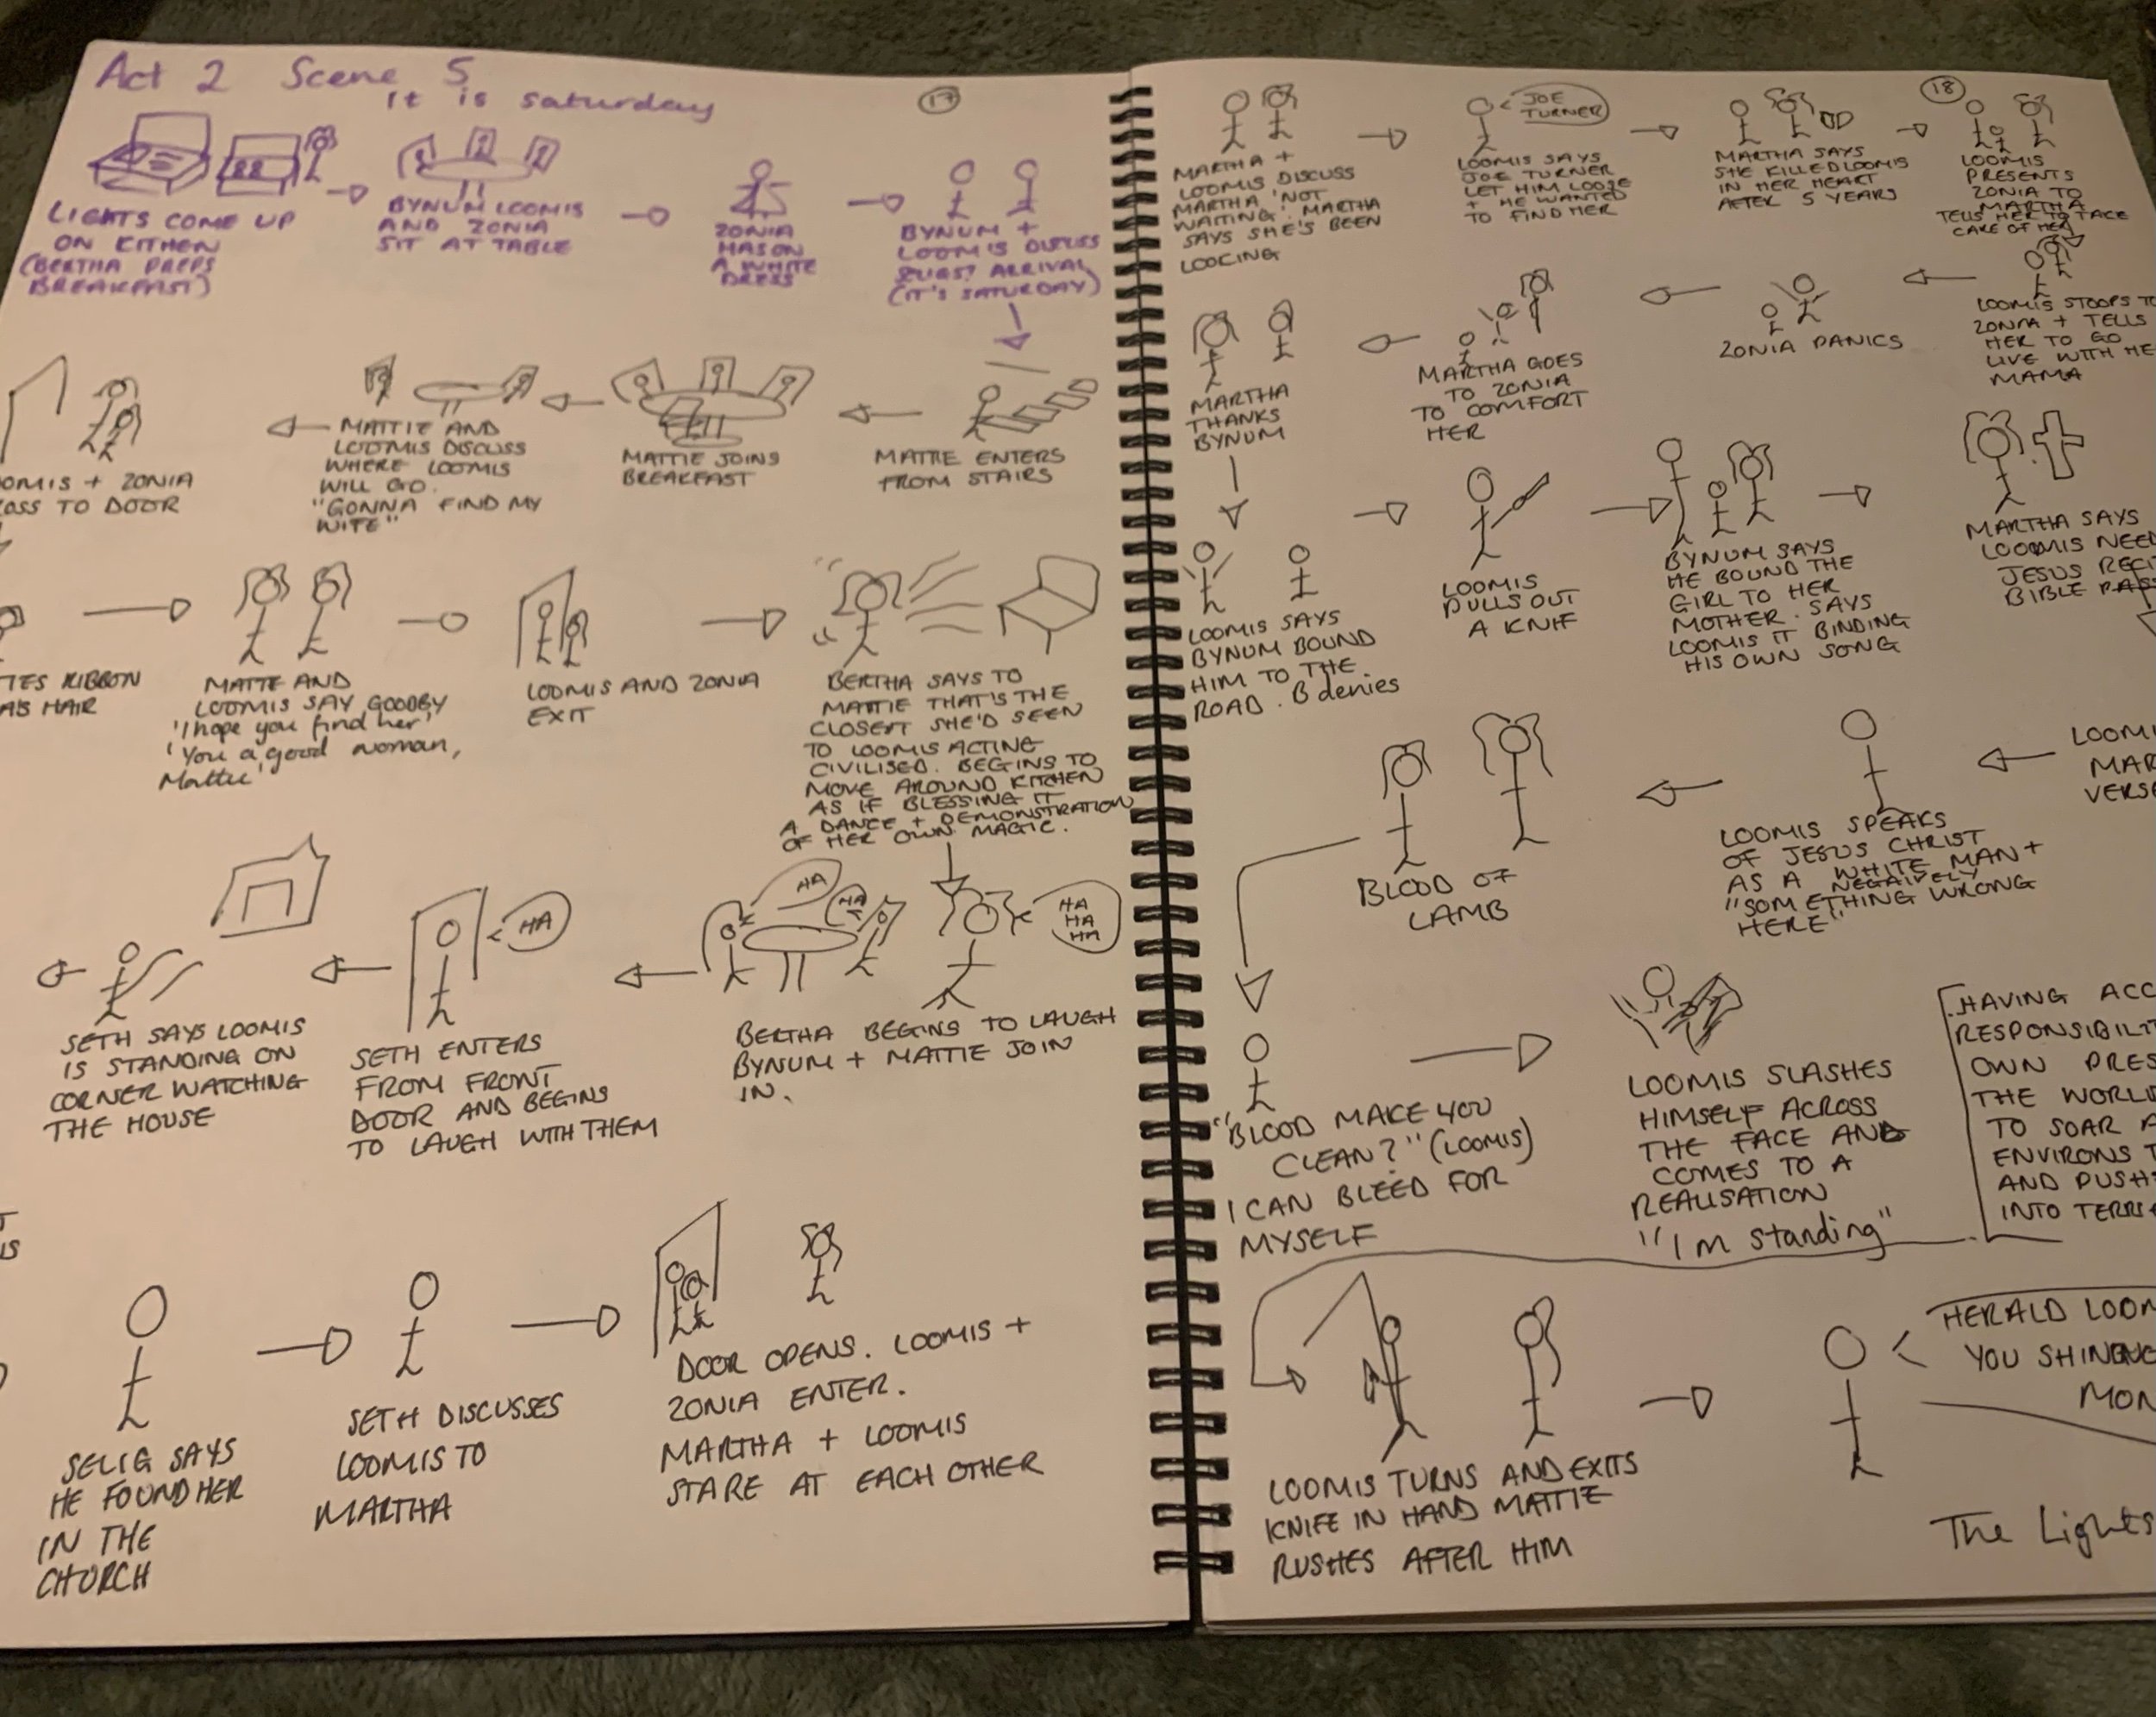 Act 2 Scene 5
it is saturday
17
LIGHTS COME UP
ON KITHEN
(BERTHA PREPS
BREAKFAST)
BYNUM LOOMIS
AND ZONIA
SIT AT TABLE
ZONIA
HAS ON
A WHITE
DRESS
BYNUM +
LOOMIS DISCUSS
ARRIVAL
(IT'S SATURDAY)
MATTIE ENTERS
FROM STAIRS
MATTIE JOINS
BREAKFAST
MATTIE AND
LOOMIS DISCUSS
WHERE LOOMIS
WILL GO.
"GONNA FIND MY
WIFE"
OOMIS + ZONIA
OSS TO DOOR
TIES RIBBON
A'S HAIR
MATTE AND
LOOMIS SAY GOODBY
'I hope you find her'
'You a good woman,
Mattie'
LOOMIS AND ZONIA
EXIT
BERTHA SAYS TO
MATTIE THAT'S THE
CLOSEST SHE'D SEEN
TO LOOMIS ACTING
CIVILISED. BEGINS TO
MOVE AROUND KITCHEN
AS IF BLESSING IT
A DANCE + DEMONSTRATION
OF HER OWN MAGIC.
HA
HA
HA
HA
HA
BERTHA BEGINS TO LAUGH
BYNUM + MATTIE JOIN
IN.
HA
SETH ENTERS
FROM FRONT
DOOR AND BEGINS
TO LAUGH WITH THEM
SETH SAYS LOOMIS
IS STANDING ON
CORNER WATCHING
THE HOUSE
IS
SELIG SAYS
HE FOUND HER
IN THE
CHURCH
SETH DISCUSSES
LOOMIS TO
MARTHA
DOOR OPENS. LOOMIS +
ZONIA ENTER.
MARTHA + LOOMIS
STARE AT EACH OTHER
18
MARTHA +
LOOMIS DISCUSS
MARTHA 'NOT
WAITING'. MARTHA
SAYS SHE'S BEEN
LOOKING
JOE
TURNER
LOOMIS SAYS
JOE TURNER
LET HIM LOOSE
+ HE WANTED
TO FIND HER
MARTHA SAYS
SHE KILLED LOOMIS
IN HER HEART
AFTER 5 YEARS
LOOMIS
PRESENTS
ZONIA TO
MARTHA
TELLS HER TO TAKE
CARE OF HER
LOOMIS STOOPS TO
ZONIA + TELLS
HER TO GO
LIVE WITH HE
MAMA
ZONIA PANICS
MARTHA GOES
TO ZONIA
TO COMFORT
HER
MARTHA
THANKS
BYNUM
LOOMIS SAYS
BYNUM BOUND
HIM TO THE
ROAD. B denies
LOOMIS
PULLS OUT
A KNIFE
BYNUM SAYS
HE BOUND THE
GIRL TO HER
MOTHER. SAYS
LOOMIS IT BINDING
HIS OWN SONG
MARTHA SAYS
LOOMIS NEED
JESUS RECIT
BIBLE PASS
LOOMI
MAR
VERSE
LOOMIS SPEAKS
OF JESUS CHRIST
AS A WHITE MAN +
NEGAIVELY
"SOMETHING WRONG
HERE"
BLOOD OF
LAMB
"BLOOD MAKE YOU
CLEAN?" (LOOMIS)
I CAN BLEED FOR
MYSELF
LOOMIS SLASHES
HIMSELF ACROSS
THE FACE AND
COMES TO A
REALISATION
"I'm standing"
HAVING ACC
RESPONSIBILIT
OWN PRES
THE WORLD
TO SOAR A
ENVIRONS T
AND PUSH
INTO TERRI
LOOMIS TURNS AND EXITS
KNIFE IN HAND MATTIE
RUSHES AFTER HIM
HERALD LOOM
YOU SHINING
MON
The Lights